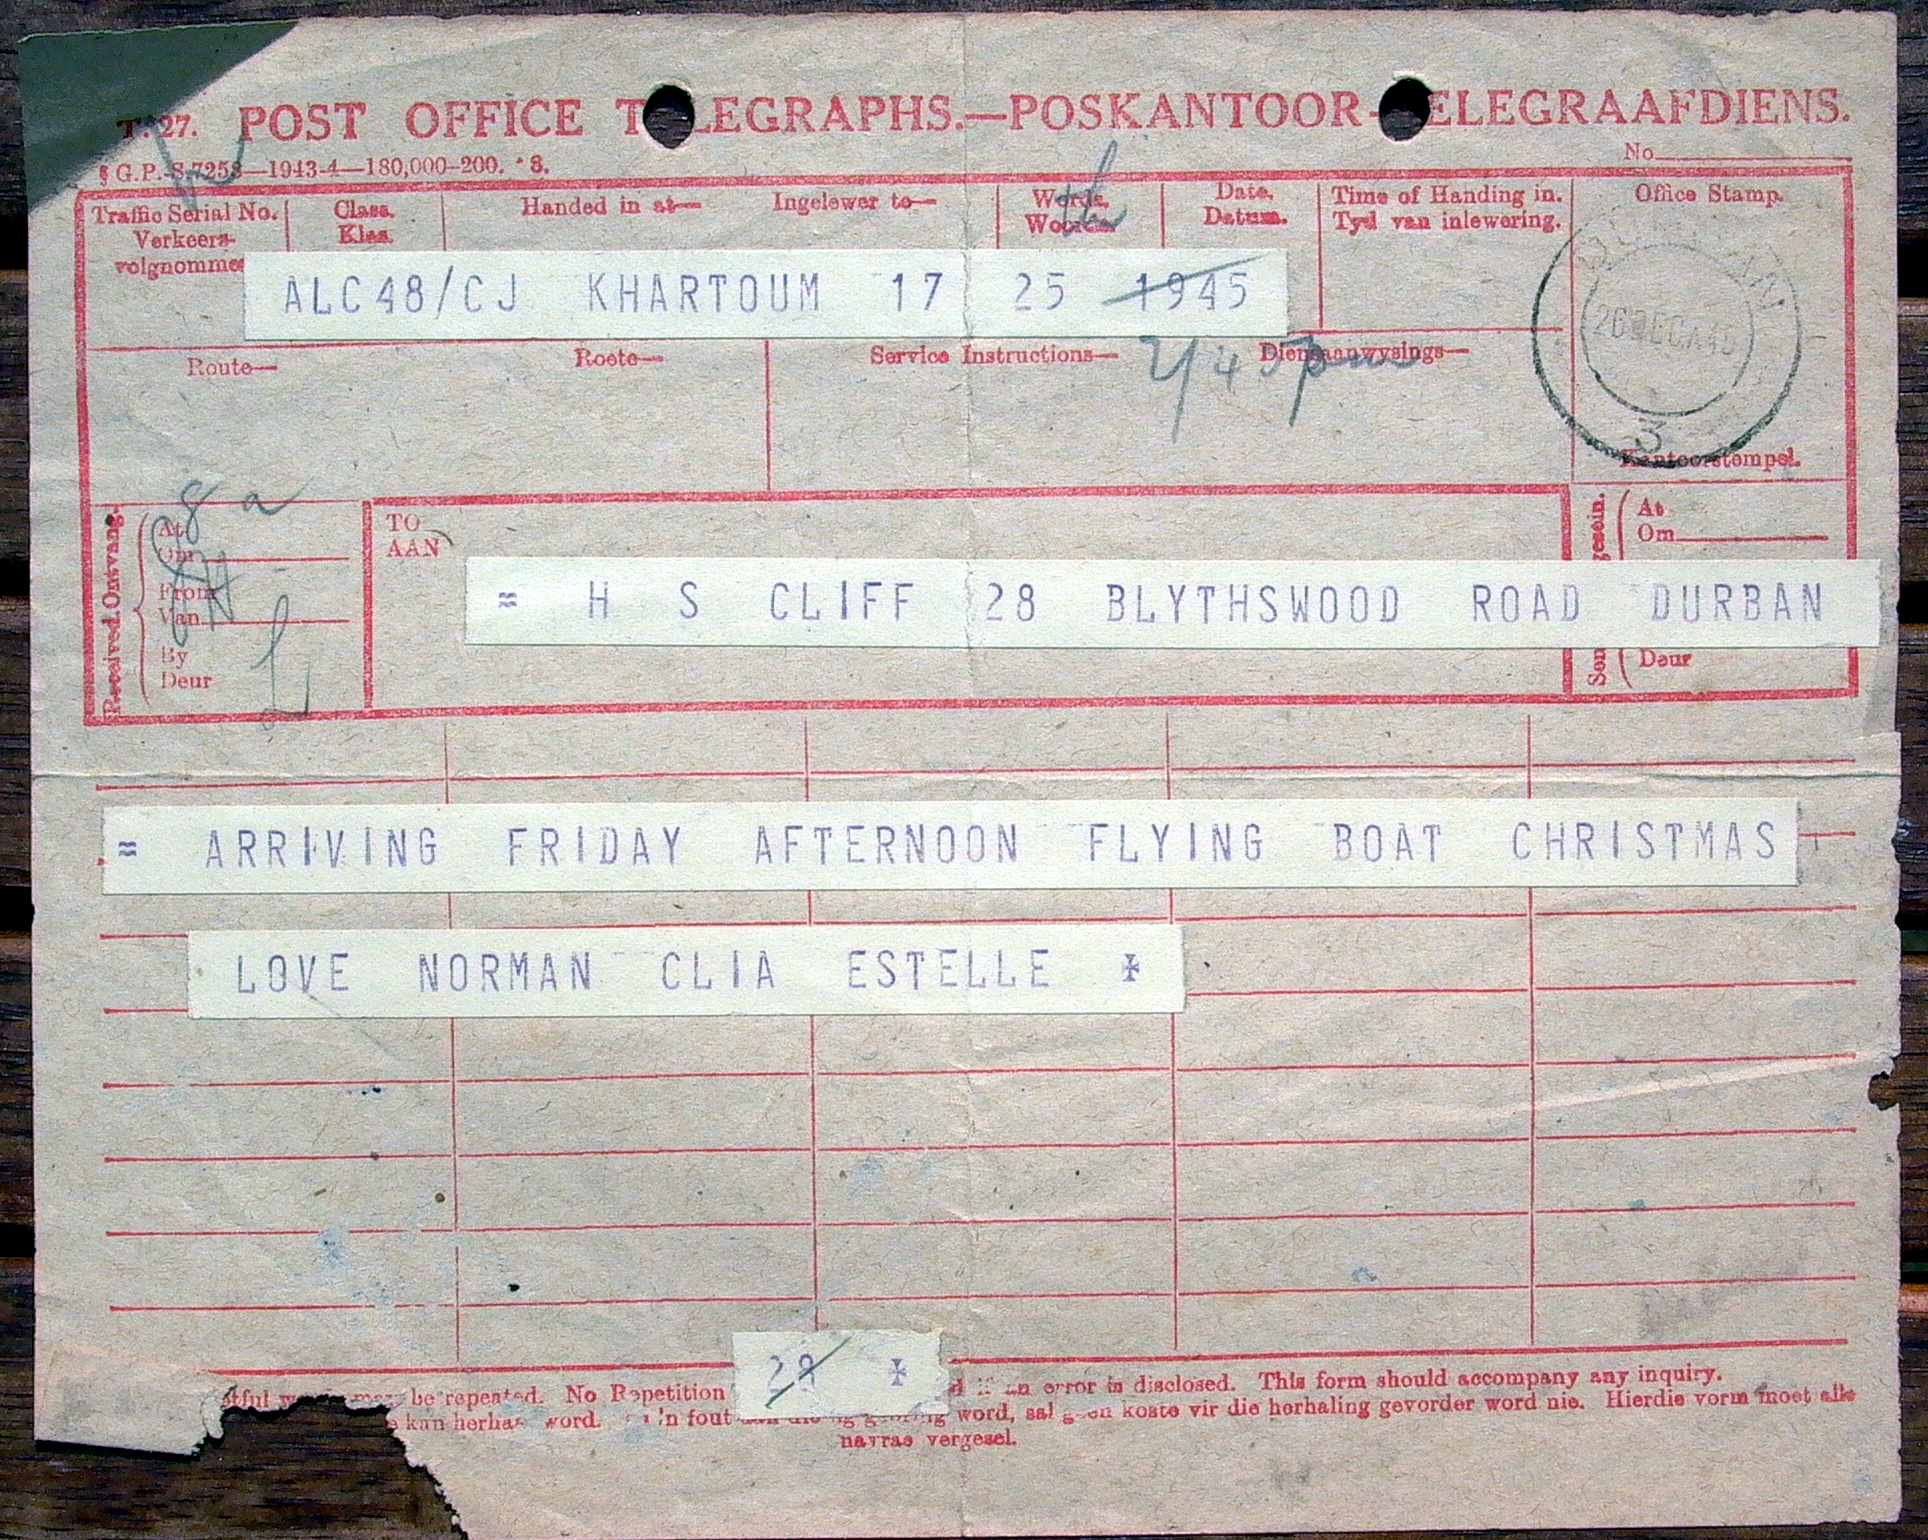 T. 27. POST OFFICE TELEGRAPHS.—POSKANTOOR-TELEGRAAFDIENS.
§ G.P.-S.7258—1943-4—180,000-200. *8.
No.
Traffic Serial No. Class. Handed in at— Ingelewer to— Words. Date. Time of Handing in. Office Stamp.
Verkeers- Klas. Woorde. Datum. Tyd van inlewering.
volgnomme
ALC48/CJ KHARTOUM 17 25 1945
26 DEC A 45
3
Route— Roete— Service Instructions— Diensaanwysings—
7/45pm
Kantoorstempel.
8 a
Received.Ontvang.
At
Om
From
Van
By
Deur
TO
AAN
= H S CLIFF 28 BLYTHSWOOD ROAD DURBAN
At
Om
Deur
= ARRIVING FRIDAY AFTERNOON FLYING BOAT CHRISTMAS
LOVE NORMAN CLIA ESTELLE
28
may be repeated. No Repetition if an error is disclosed. This form should accompany any inquiry.
kan herhaal word. 'n fout word, sal geen koste vir die herhaling gevorder word nie. Hierdie vorm moet alle
navrae vergesel.